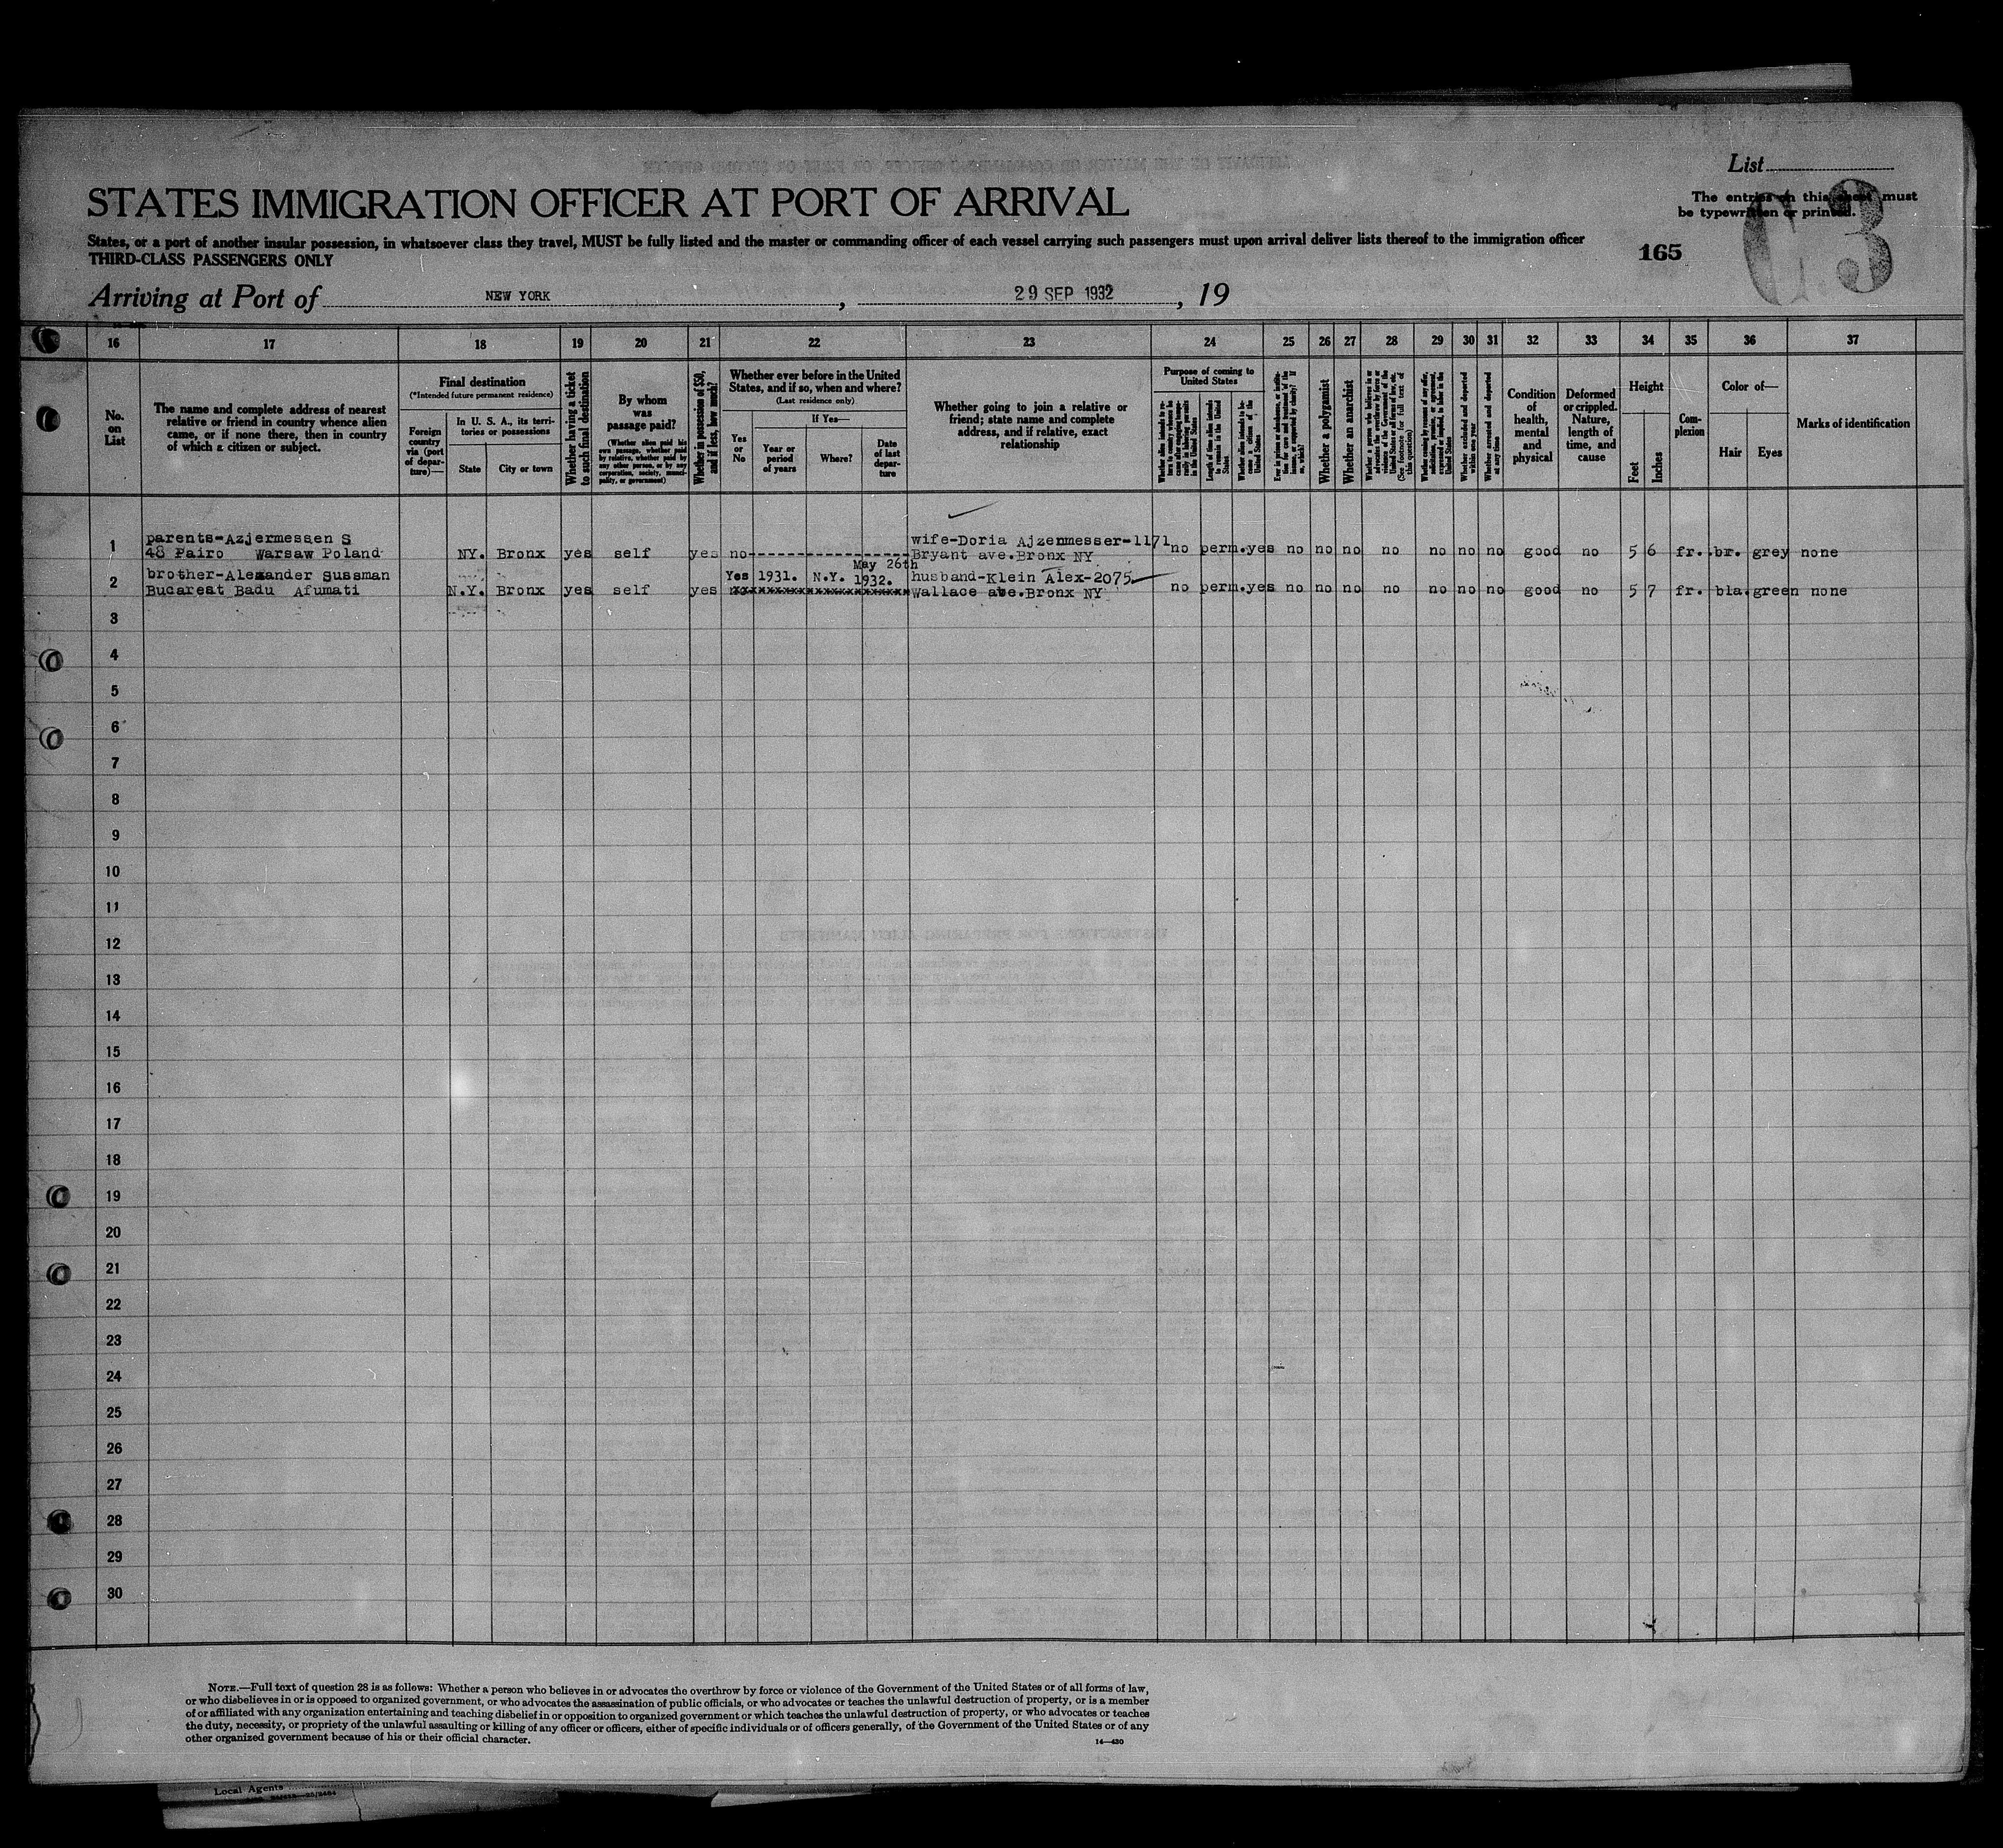 List
STATES IMMIGRATION OFFICER AT PORT OF ARRIVAL
The entries on this sheet must
be typewritten or printed.
C.3
States, or a port of another insular possession, in whatsoever class they travel, MUST be fully listed and the master or commanding officer of each vessel carrying such passengers must upon arrival deliver lists thereof to the immigration officer
THIRD-CLASS PASSENGERS ONLY
165
Arriving at Port of NEW YORK, 29 SEP 1932, 19
16 17 18 19 20 21 22 23 24 25 26 27 28 29 30 31 32 33 34 35 36 37
No. on List
The name and complete address of nearest
relative or friend in country whence alien
came, or if none there, then in country
of which a citizen or subject.
Final destination
(*Intended future permanent residence)
Foreign country via (port of departure)—
In U. S. A., its territories or possessions
State
City or town
Whether having a ticket to such final destination
By whom was passage paid?
(Whether alien paid his own passage, whether paid by relative, whether paid by any other person, or by any corporation, society, municipality, or government)
Whether in possession of $50, and if less, how much?
Whether ever before in the United
States, and if so, when and where?
(Last residence only)
Yes or No
If Yes—
Year or period of years
Where?
Date of last departure
Whether going to join a relative or
friend; state name and complete
address, and if relative, exact
relationship
Purpose of coming to United States
Whether alien intends to return to country whence he came after engaging temporarily in laboring pursuits in the United States
Length of time alien intends to remain in the United States
Whether alien intends to become a citizen of the United States
Whether a polygamist
Whether an anarchist
Whether excluded and deported within one year
Whether arrested and deported at any time
Condition of health, mental and physical
Deformed or crippled. Nature, length of time, and cause
Height
Feet
Inches
Complexion
Color of—
Hair
Eyes
Marks of identification
parents-Azjermessen S wife-Doria Ajzenmesser-1171
1 48 Pairo Warsaw Poland NY. Bronx yes self yes no-------------------- Bryant ave.Bronx NY no perm. yes no no no no no no no good no 5 6 fr. br. grey none
May 26th
brother-Alexander Sussman Yes 1931. N.Y. 1932. husband-Klein Alex-2075
2 Bucarest Badu Afumati N.Y. Bronx yes self yes no Wallace ave.Bronx NY no perm. yes no no no no no no no good no 5 7 fr. bla. green none
3
4
5
6
7
8
9
10
11
12
13
14
15
16
17
18
19
20
21
22
23
24
25
26
27
28
29
30
NOTE.—Full text of question 28 is as follows: Whether a person who believes in or advocates the overthrow by force or violence of the Government of the United States or of all forms of law,
or who disbelieves in or is opposed to organized government, or who advocates the assassination of public officials, or who advocates or teaches the unlawful destruction of property, or is a member
of or affiliated with any organization entertaining and teaching disbelief in or opposition to organized government or which teaches the unlawful destruction of property, or who advocates or teaches
the duty, necessity, or propriety of the unlawful assaulting or killing of any officer or officers, either of specific individuals or of officers generally, of the Government of the United States or of any
other organized government because of his or their official character.
14—420
Local Agents